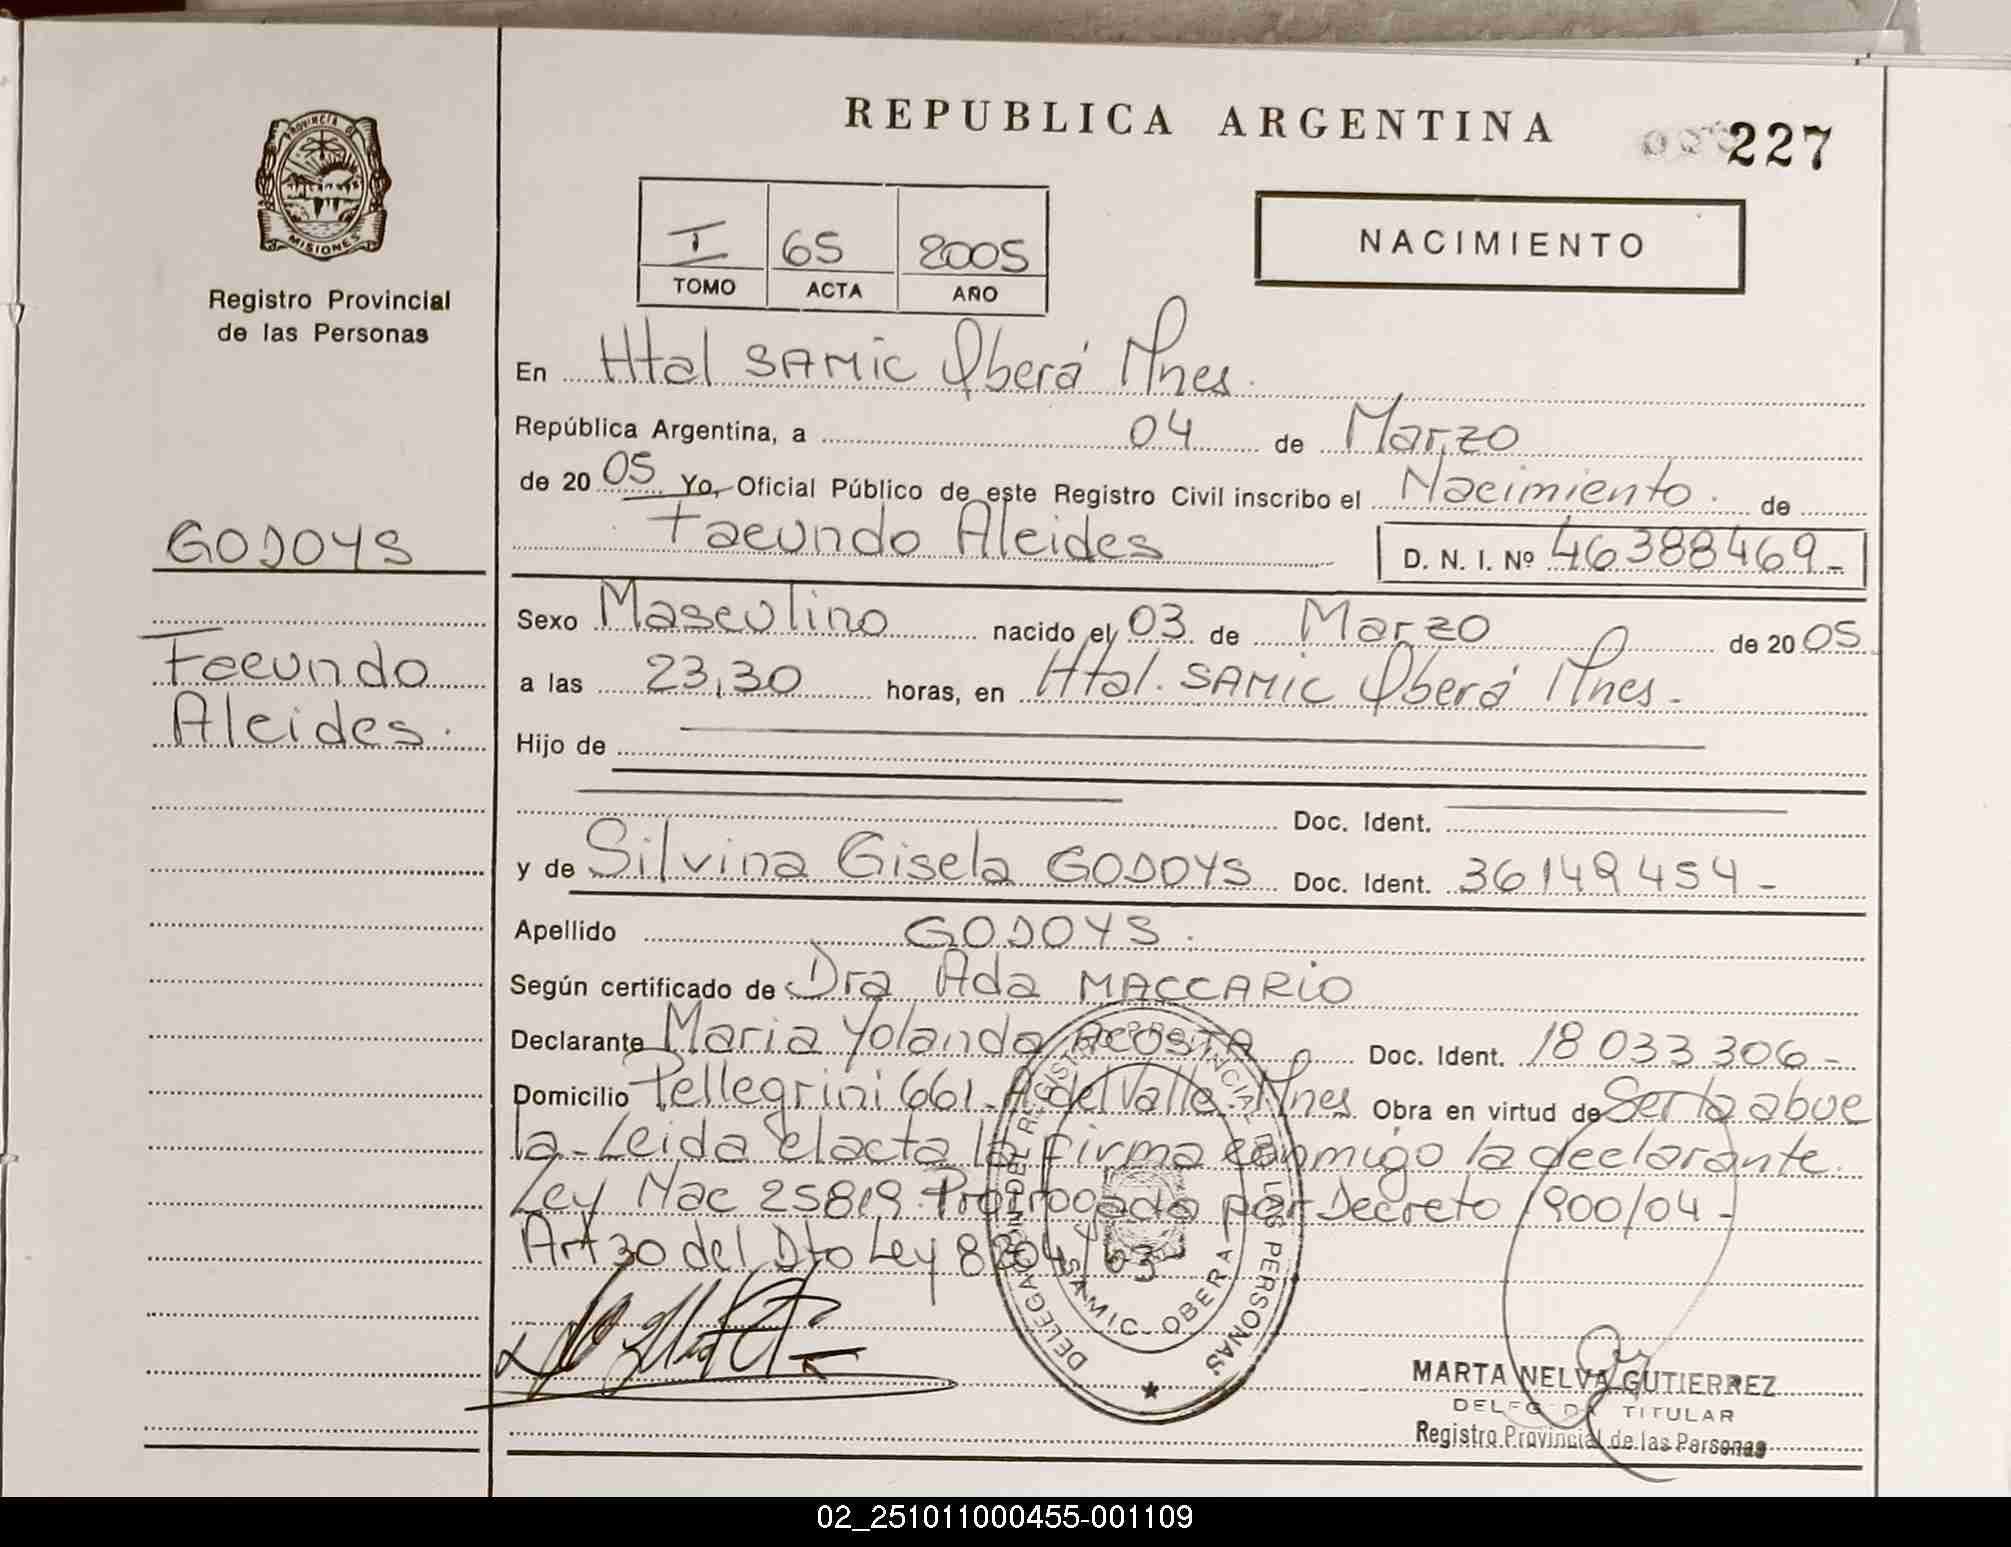 REPUBLICA ARGENTINA
227
PROVINCIA DE
MISIONES
Registro Provincial
de las Personas
I 65 2005
TOMO ACTA AÑO
NACIMIENTO
En Htal SAMIC Oberá Mnes.
República Argentina, a 04 de Marzo
de 20 05 Yo, Oficial Público de este Registro Civil inscribo el Nacimiento. de
Facundo Alcides D. N. I. Nº 46388469-
GODOYS
Facundo
Alcides.
Sexo Masculino nacido el 03 de Marzo de 20 05
a las 23,30 horas, en Htal. SAMIC Oberá Mnes-
Hijo de
Doc. Ident.
y de Silvina Gisela GODOYS Doc. Ident. 36149454-
Apellido GODOYS.
Según certificado de Dra Ada MACCARIO
Declarante Maria Yolanda ACOSTA Doc. Ident. 18 033 306-
Domicilio Pellegrini 661-A del Valle-Mnes Obra en virtud de Ser la abue
la-Leida el acta la firma conmigo la declarante.
Ley Nac 25819 Prorrogada por Decreto 1900/04-
Art 30 del Dto Ley 8204/63
DELEGACION DEL REGISTRO PROVINCIAL DE LAS PERSONAS.
SAMIC-OBERA
MARTA NELVA GUTIERREZ
DELEGADA TITULAR
Registro Provincial de las Personas
02_251011000455-001109